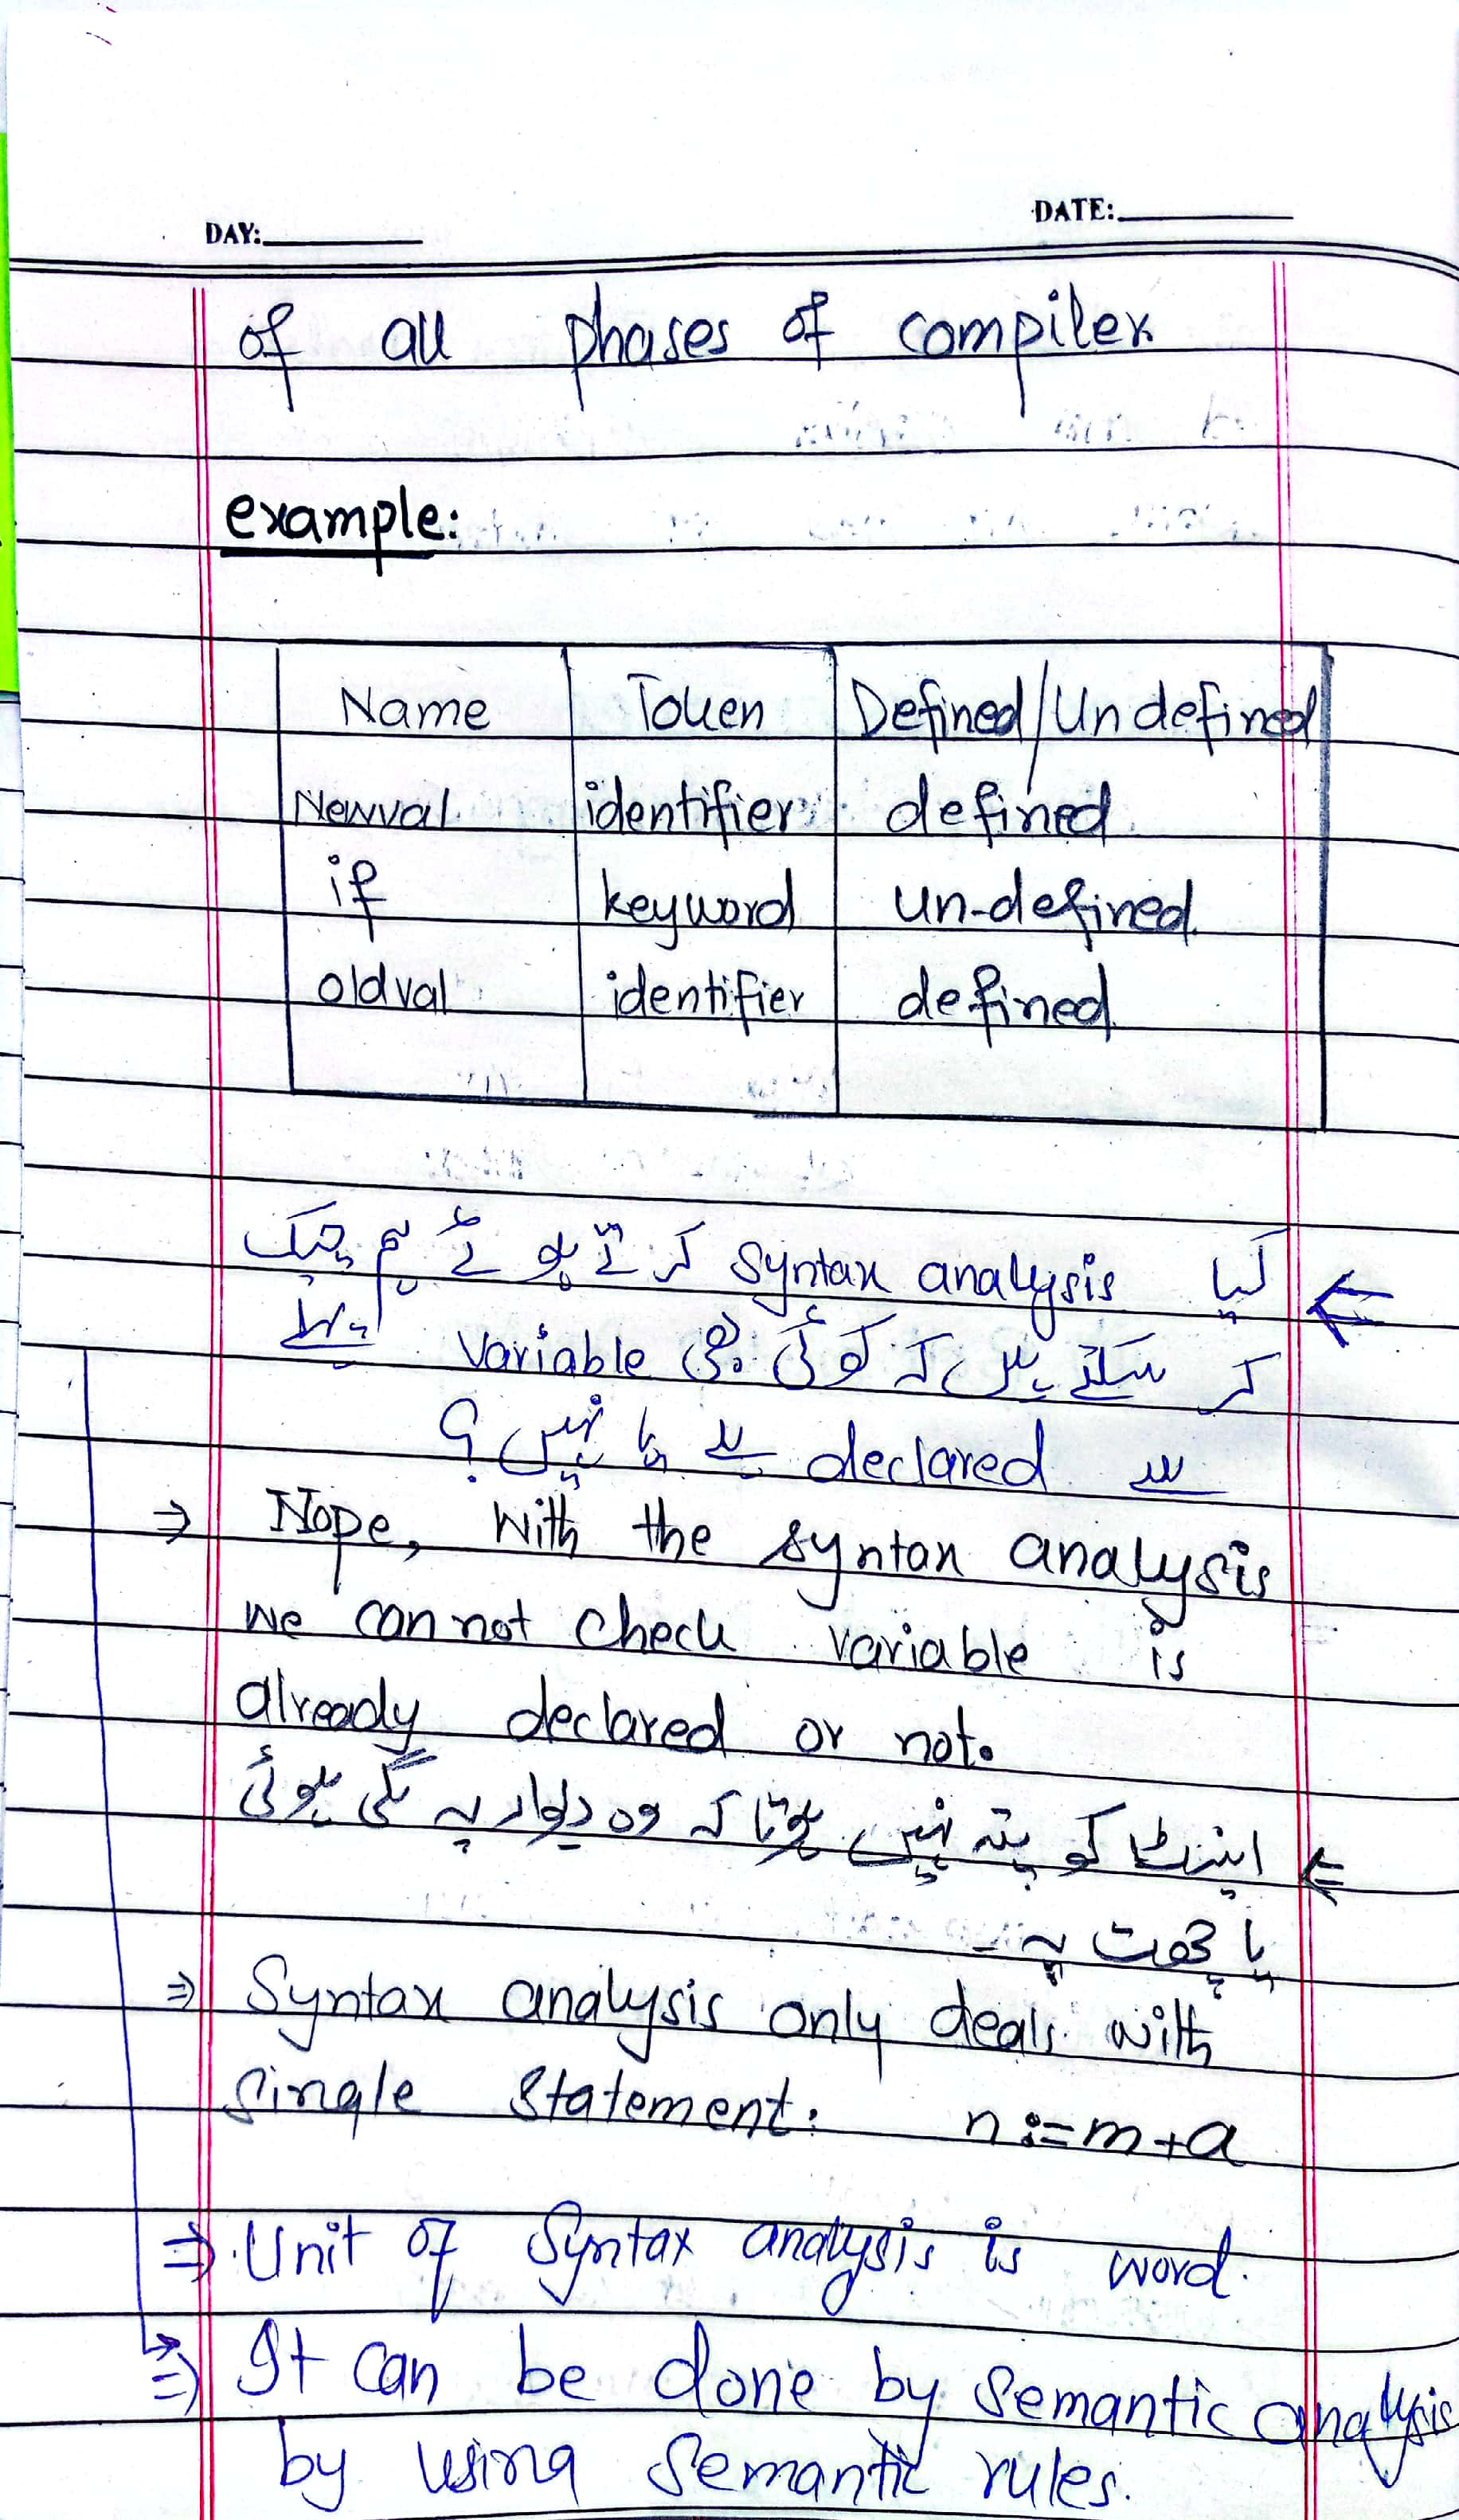 DAY:
DATE:
of all phases of compiler
example:
Name Token Defined/Undefined
Newval identifier defined
if keyword un-defined
oldval identifier defined
کیا syntax analysis کرتے ہوئے ہم چیک
کر سکتے ہیں کہ کوئی بھی variable پہلے
سے declared ہے یا نہیں؟
⇒ Nope, With the syntax analysis
we can not check variable is
already declared or not.
اینٹ کو پتہ نہیں ہوتا کہ وہ دیوار پہ لگی ہوئی
یا چھت پہ۔
⇒ Syntax analysis only deals with
single statement. n:=m+a
⇒ Unit of Syntax analysis is word.
⇒ It can be done by semantic analysis
by using semantic rules.